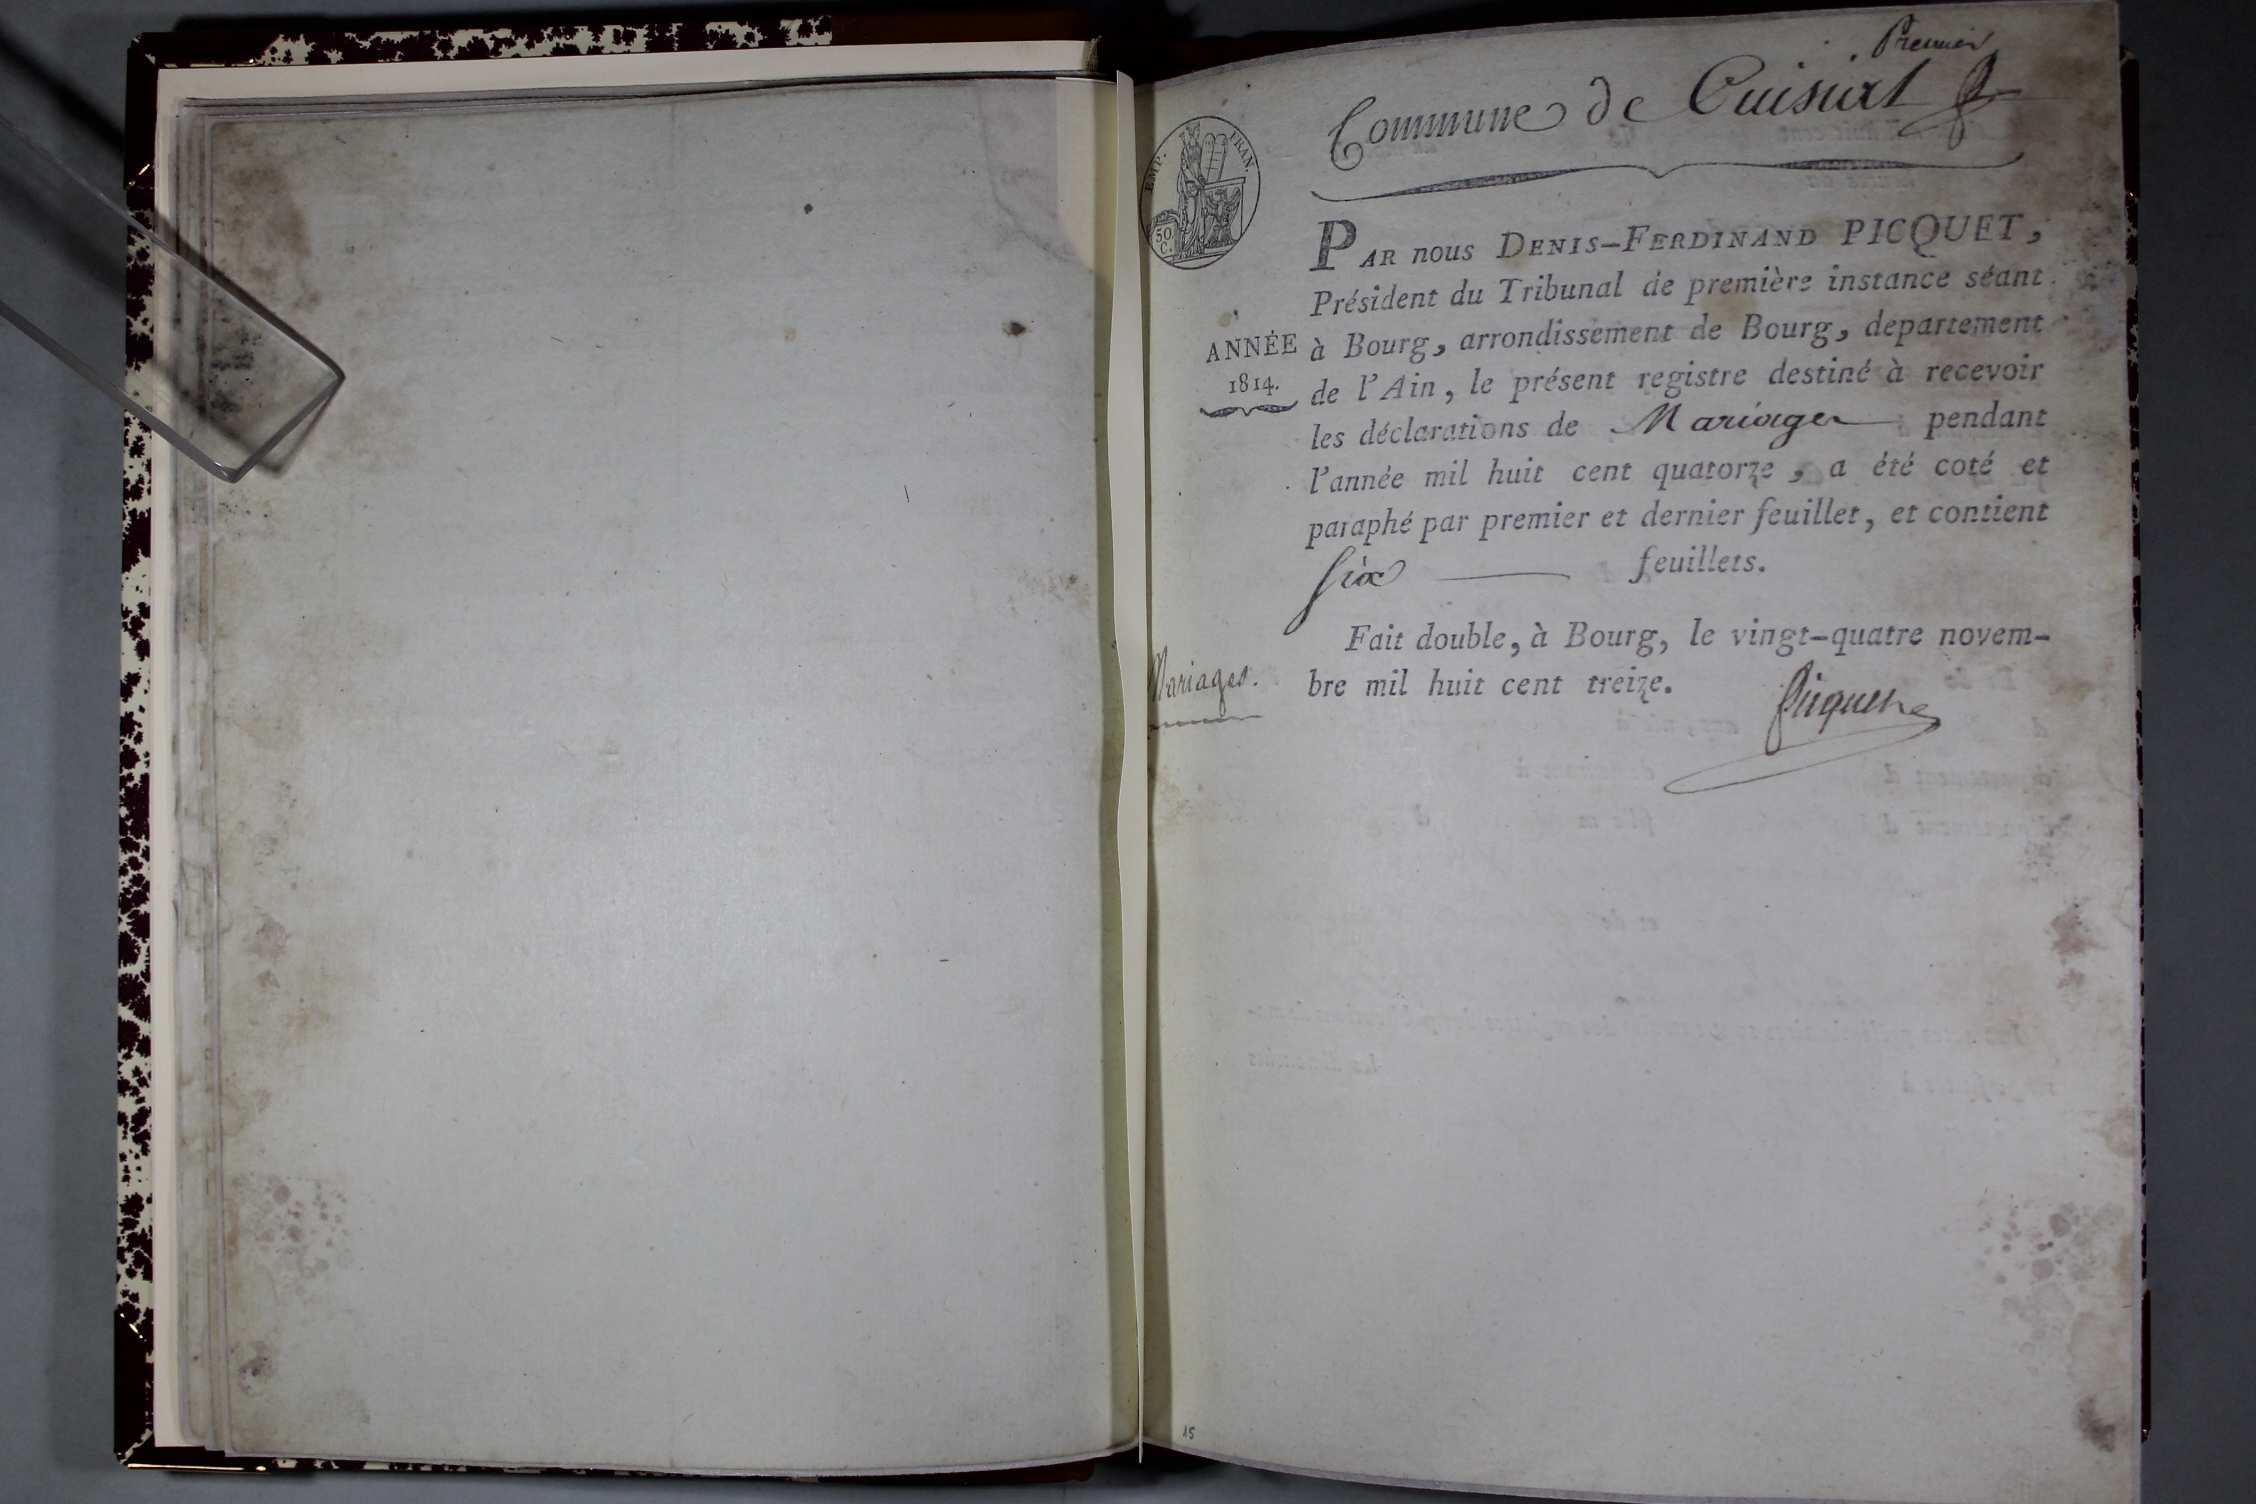 Premier
Commune de Cuisiat
EMP. FRAN.
50
C.
PAR nous DENIS-FERDINAND PICQUET,
Président du Tribunal de première instance séant
ANNÉE
1814.
à Bourg, arrondissement de Bourg, departement
de l'Ain, le présent registre destiné à recevoir
les déclarations de Mariages pendant
l'année mil huit cent quatorze, a été coté et
paraphé par premier et dernier feuillet, et contient
six feuillets.
Fait double, à Bourg, le vingt-quatre novem-
bre mil huit cent treize.
Mariages.
Picquet
15